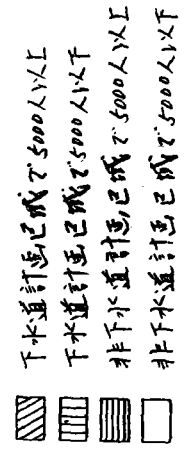 下水道計画区域で5000人以上
下水道計画区域で5000人以下
非下水道計画区域で5000人以上
非下水道計画区域で5000人以下